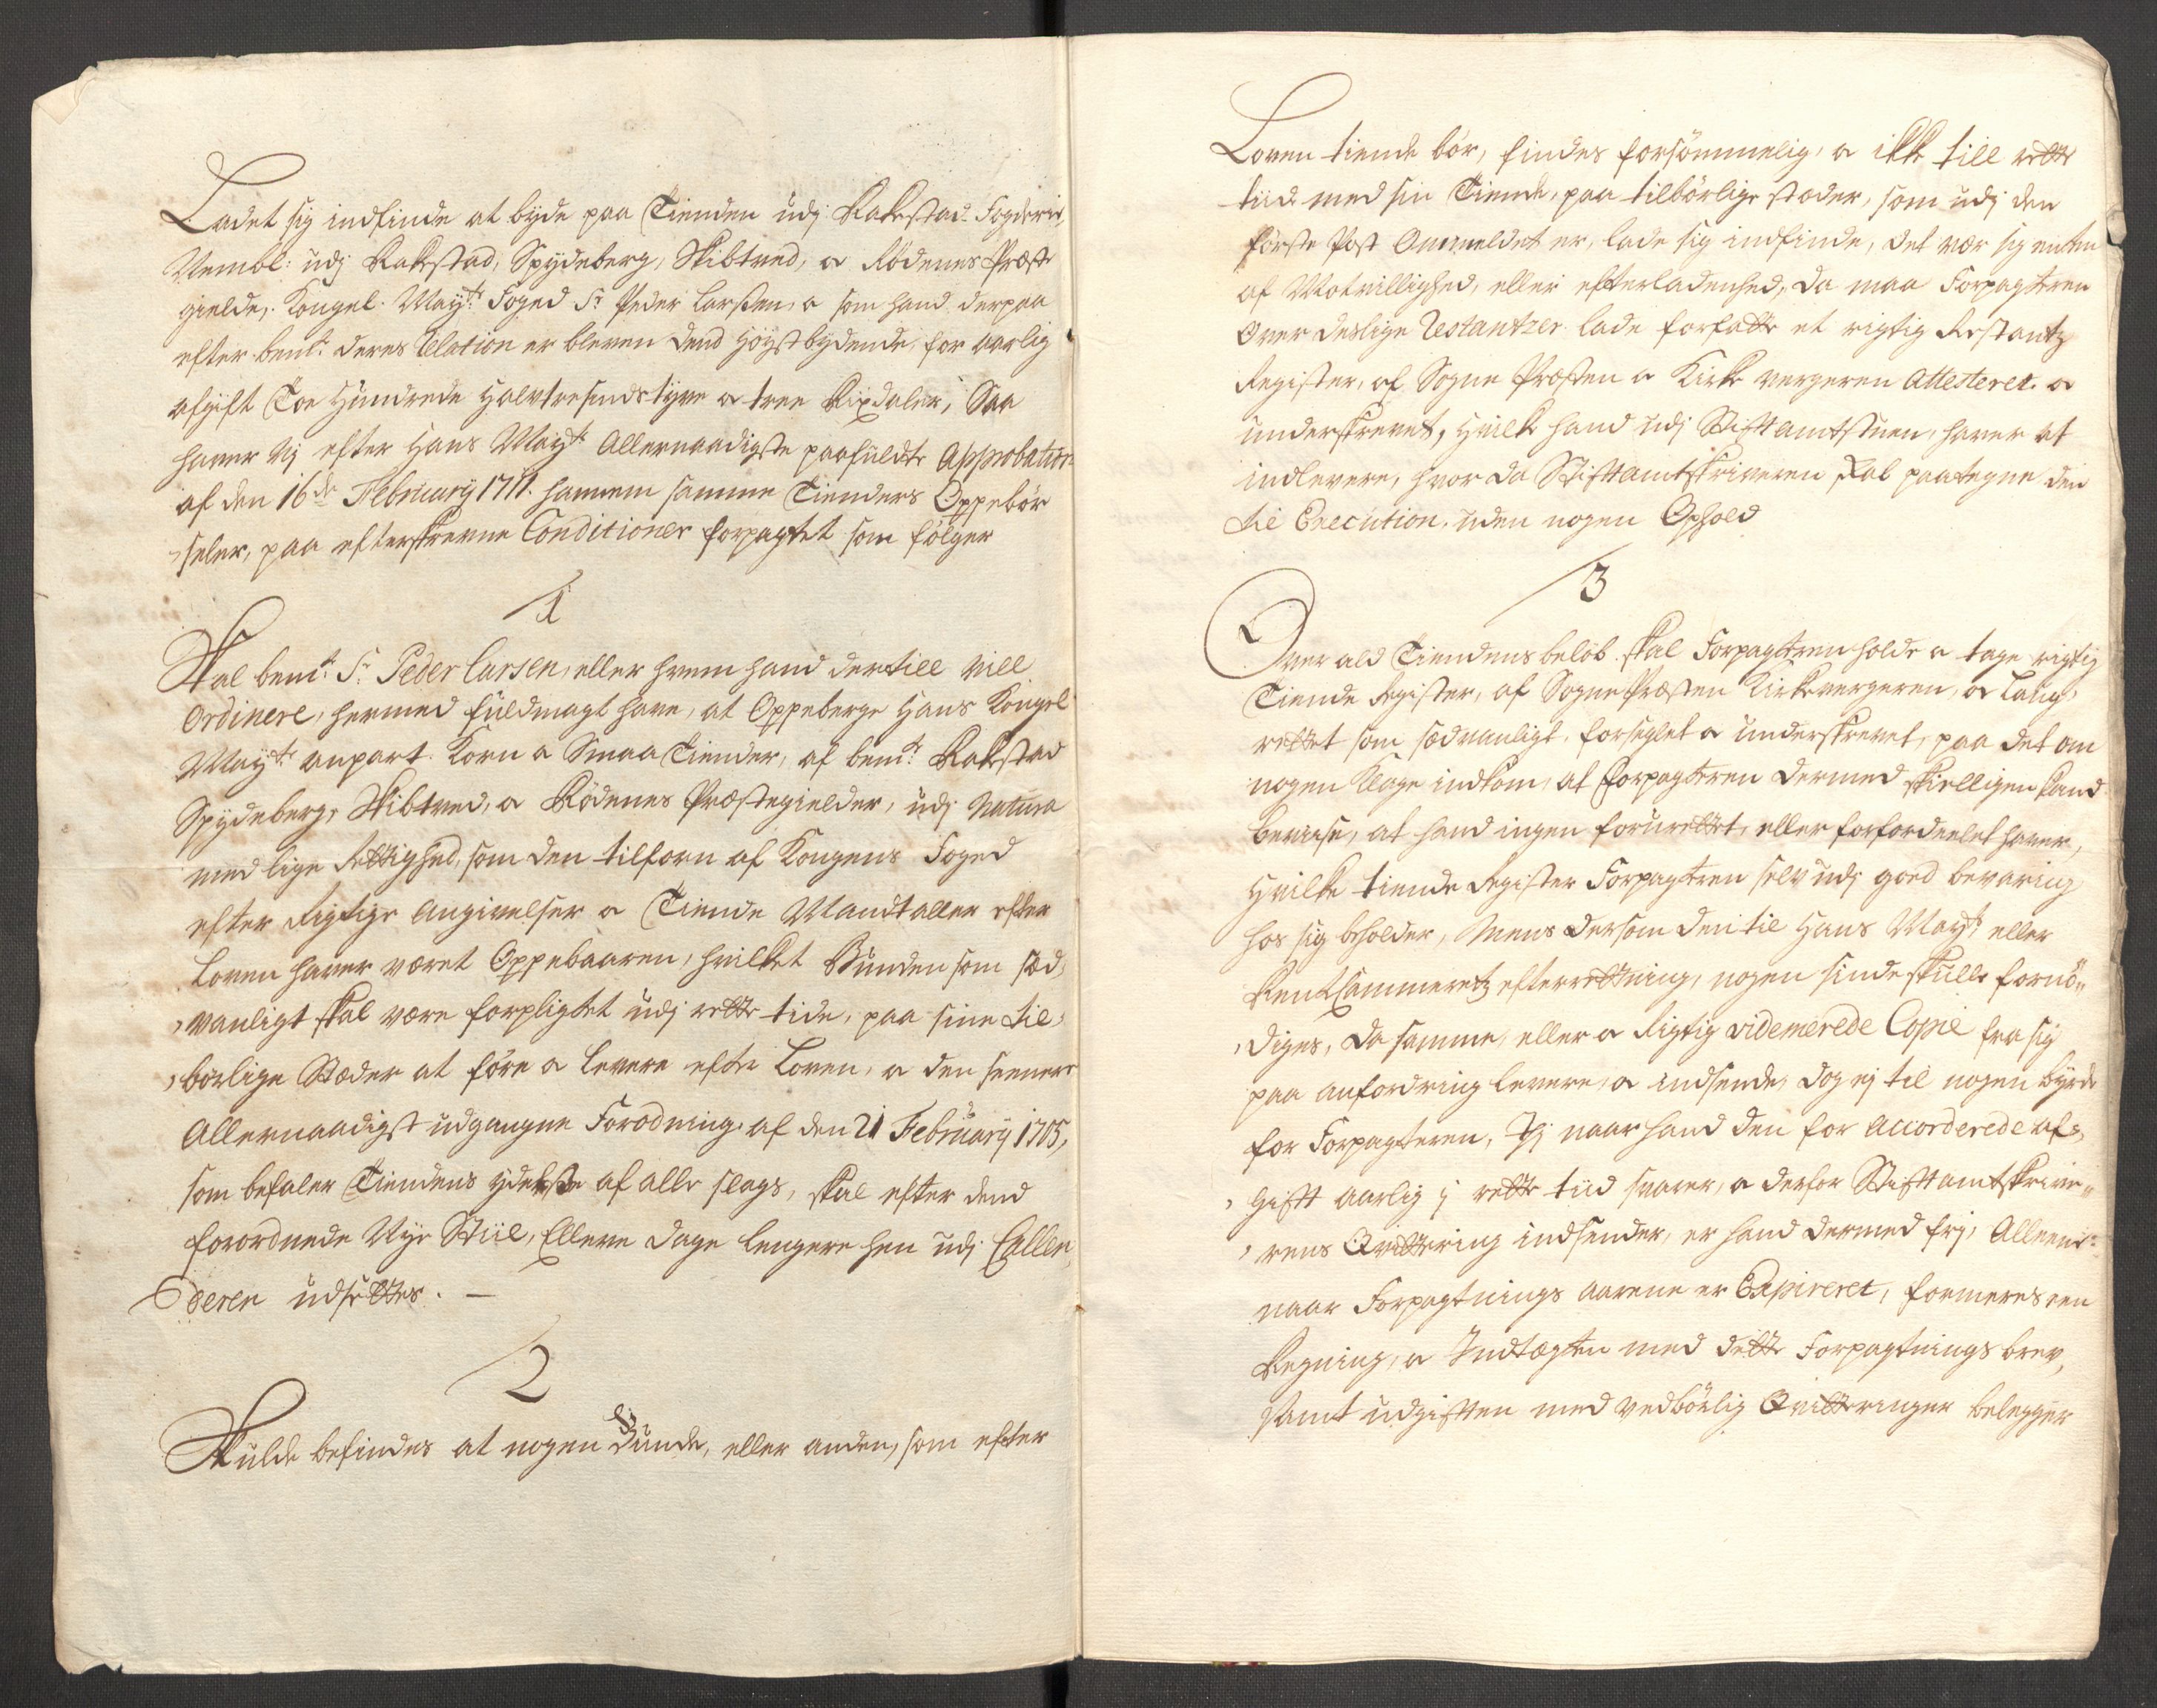 Ladet sig indfinde at byde paa Tienden udj Rakestad Fogderie,
Nembl: udj Rakestad, Spydeberg, Skibtved, og Rødenes Præste
gielde, Kongel. Mayt: Foged Sr Peder Larsen, og som hand derpaa
efter bemt: deres Relation er bleven dend Høystbydende, for aarlig
afgift Toe Hundrede Halvtresindstyve og tree Rixdaler, Saa
haver vj efter Hans Mayts Allernaadigste paafuldte Approbation
af den 16de February 1711. hannem samme Tienders Oppebør
seler, paa efterskrevne Conditioner forpagtet som følger
1
Skal bemt: Sr Peder Larsen, eller hvem hand dertill vill
Ordinere, hermed fuldmagt have, at Oppeberge Hans Kongel
Mayts anpart Korn og Smaa Tiender, af bemt: Rakestad
Spydeberg, Skibtved, og Rødenes Præstegielder, udj Natura
med lige Rettighed, som den tilforn af Kongens Foged
efter Rigtige Angivelser og Tiende Mandtaller efter
Loven haver været Oppebaaren, hvilket Bunden som sæd,
vanligt skal være forpligtet udj rette tide, paa sine til,
børlige Stæder at føre og levere efter Loven, og den seenere
Allernaadigst udgangne Forodning af den 21 February 1705,
som befaler Tiendens ydelse af alle slags, skal efter dend
forordnede Nye Stiil, Elleve dage lengere hen udj Callen,
deren udsettes. —
2
Skulde befindes at nogen Bunde, eller anden, som efter
Loven tiende bør, findes forsømmelig, og ikke till rette
tiid med sin Tiende, paa tilbørlige stæder, som udj den
første Post Ommeldet er, lade sig indfinde, det vær sig enten
af Motvillighed, eller efterladenhed, da maa Forpagteren
Over deslige Restantzer lade forfatte et rigtig Restantz
Register, af Sogne Præsten og Kirke vergeren Attesteret og
underskrevet, Hvilke hand udj Stiftamtstuen, haver at
indlevere, hvor da Stiftamtskriveren skal paategne den
til Execution, uden nogen Ophold
3
Over ald Tiendens beløb skal Forpagteren holde og tage rigtig
Tiende Register, af Sogne Præsten Kirkevergeren, og Laug,
rettet som sædvanligt, forseglet og underskrevet, paa det om
nogen Klage indkom, at Forpagteren dermed skielligen kand
bevise, at hand ingen foruretter, eller forfordeelet haver,
Hvilke tiende Register Forpagteren selv udj goed bevaring
hos sig beholder, Mens dersom den til Hans Mayt: eller
RentCammerets efterretning, nogen sinde skulle fornø„
diges, da samme, eller og Rigtig videmerede Copie fra sig
paa anfordring levere, og indsende, dog ej til nogen byrde
for Forpagteren, Thj naar hand den for accorderede af„
Gift aarlig j rette tiid svarer, og derfor Stiftamtskrive„
rens Qvittering indsender, er hand dermed frj, Alleene
naar Forpagtnings aarene er Expireret, formeres een
Regning, og Indtægten med dette Forpagtnings brev,
samt udgiften med vedbørlig Qvitteringer belegger